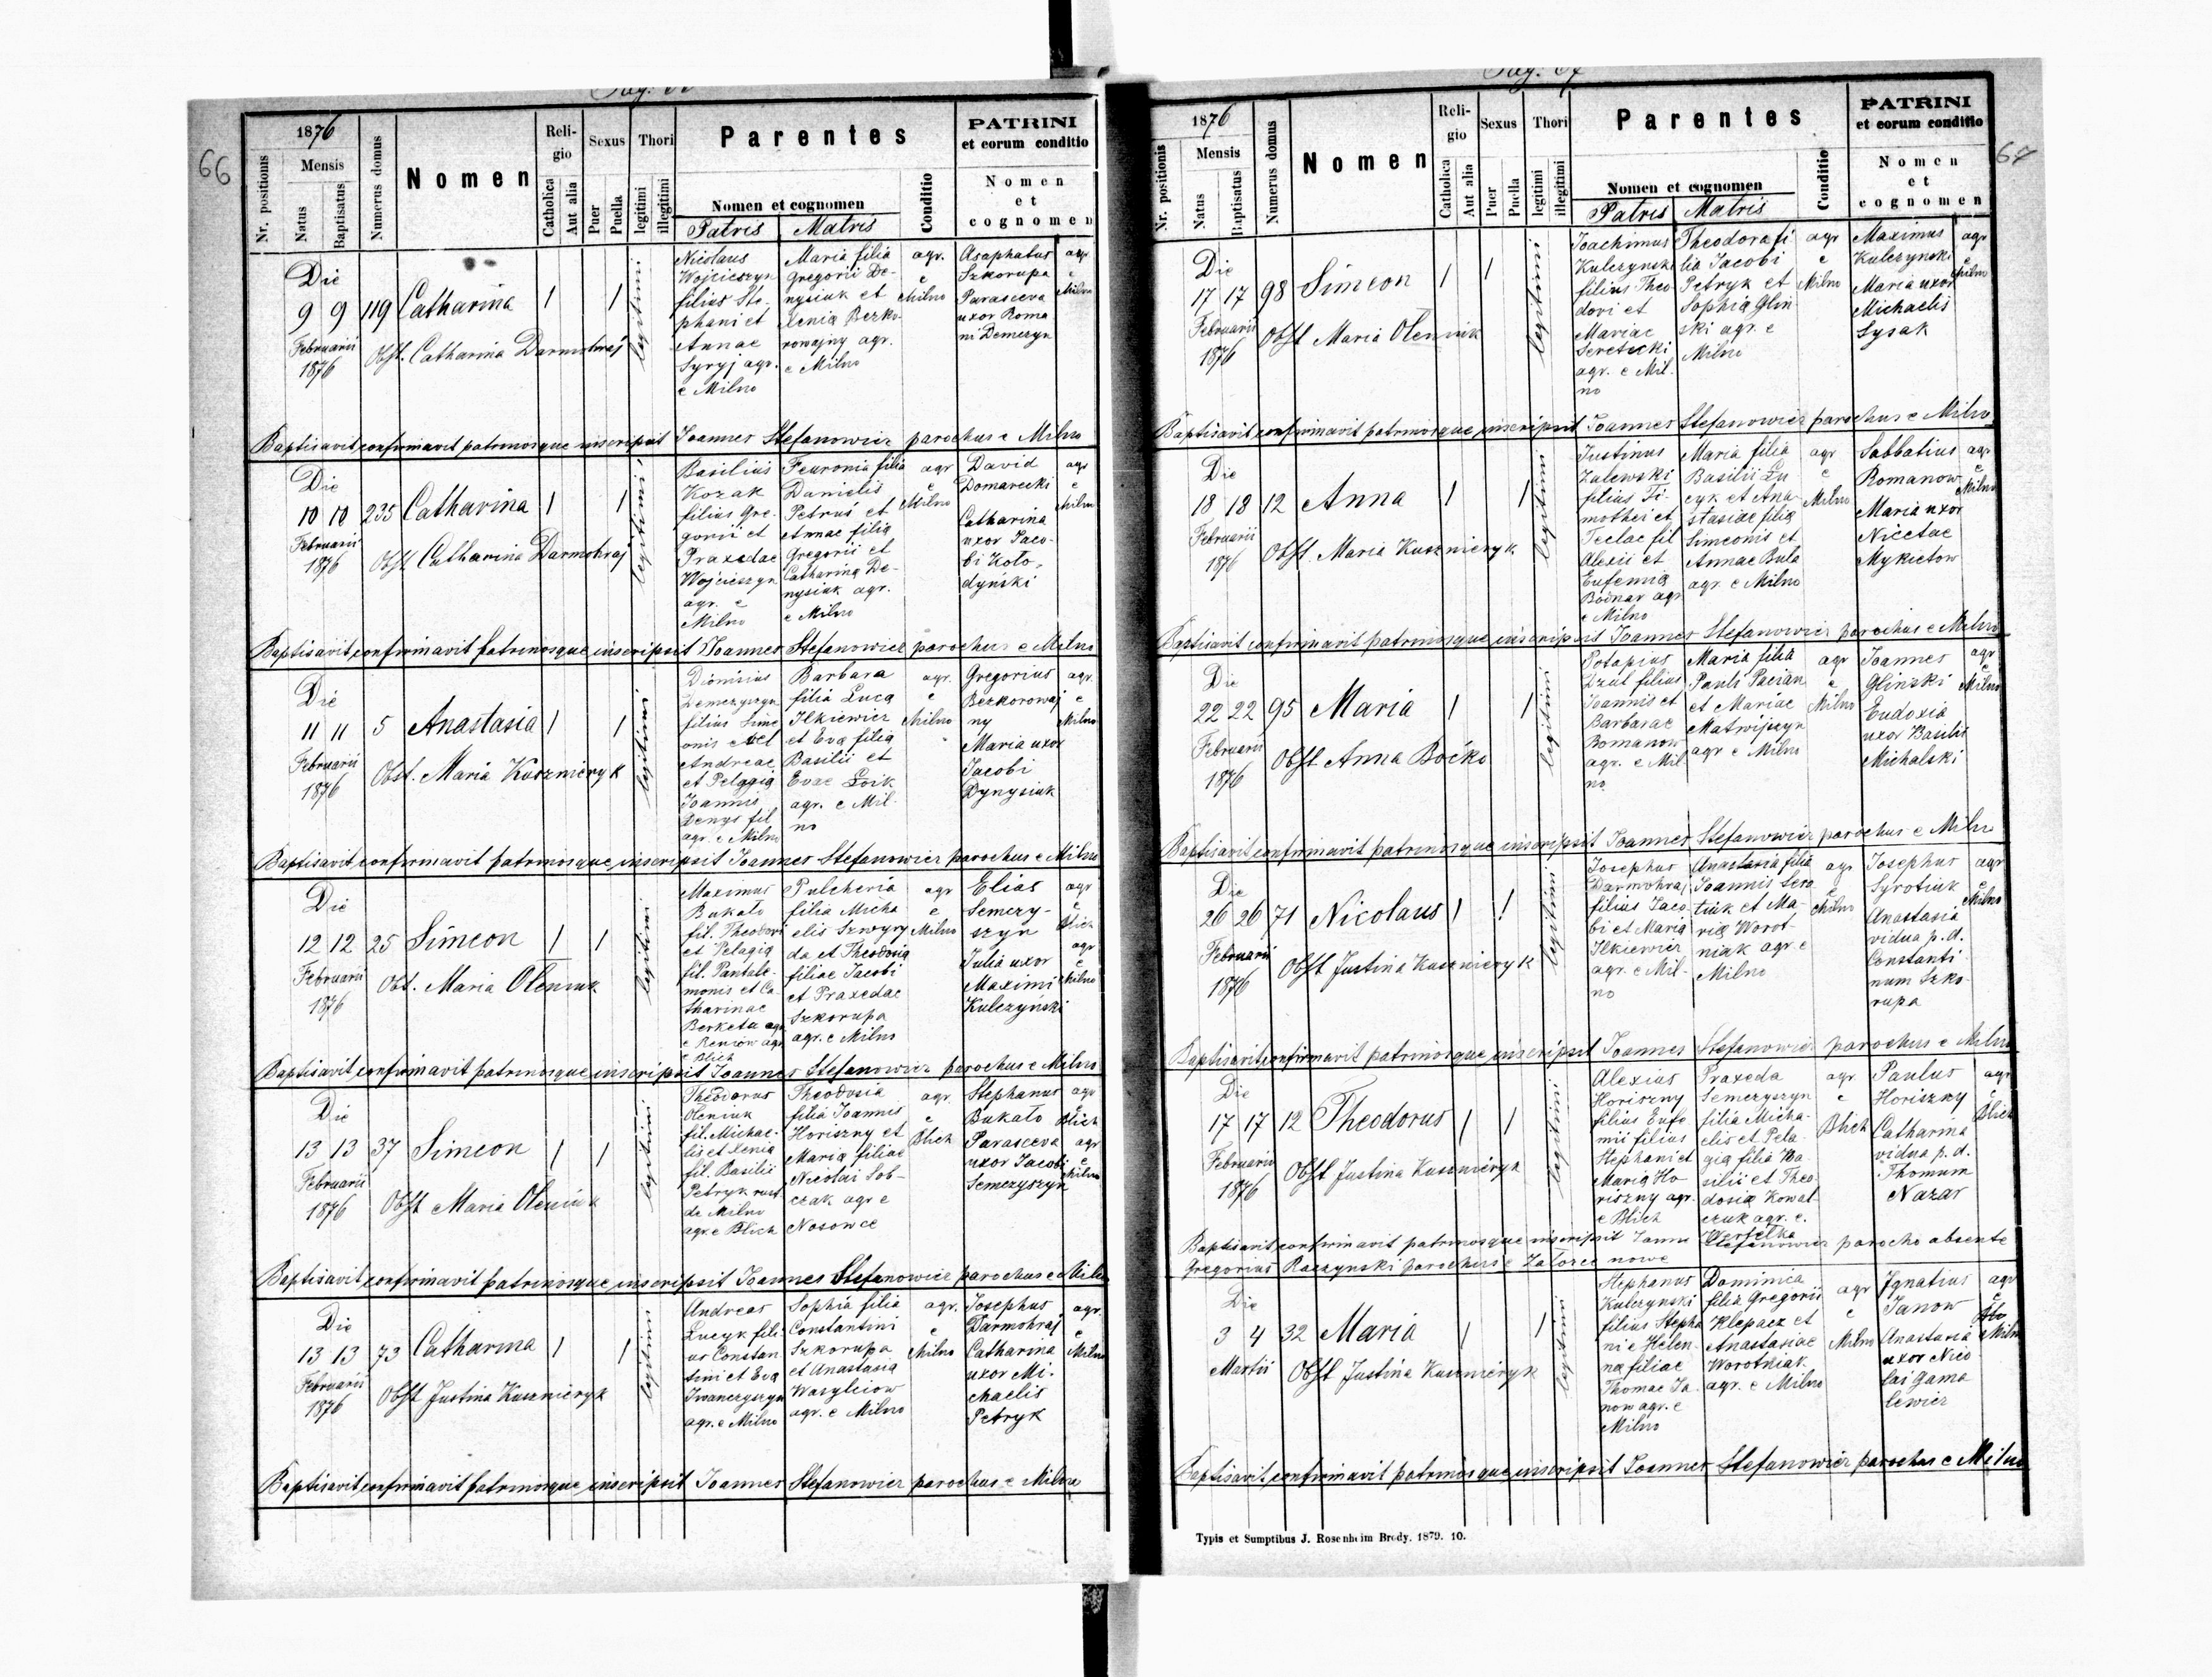 66
1876
Nr. positionus
Mensis
Natus
Baptisatus
Numerus domus
Nomen
Religio
Catholica
Aut alia
Sexus
Puer
Puella
Thori
legitimi
illegitimi
Parentes
Nomen et cognomen
Patris
Matris
Conditio
PATRINI
et eorum conditio
Nomen
et
cognomen
Die
9 9 119 Catharina 1 1
Februarii
1876
Obst. Catharina Darmohraj
legitimi
Nicolaus
Wojcieszyn
filius Ste-
phani et
Annae
Syryj agr.
e Milno
Maria filia
Gregorii De-
nysiuk et
Xenia Bezko-
rowajny agr.
e Milno
agr.
e
Milno
Asaphatus
Szkorupa
Parasceva
uxor Roma
ni Demezyn
agr
e
Milno
Baptisavit, confirmavit patrinosque inscripsit Joannes Stefanowicz parochus e Milno
Die
10 10 235 Catharina 1 1
Februarii
1876
Obst Catharina Darmohraj
legitimi
Basilius
Kozak
filius Gre-
gorii et
Praxedae
Wojcieszyn
agr. e
Milno
Feuronia filia
Danielis
Petrus et
Annae filia
Gregorii et
Catharina De-
nysiuk agr.
e Milno
agr
e
Milno
David
Domarecki
Catharina
uxor Jaco-
bi Hoło-
dyński
agr
e
Milno
Baptisavit, confirmavit patrinosque inscripsit Joannes Stefanowicz parochus e Milno
Die
11 11 5 Anastasia 1 1
Februarii
1876
Obst. Maria Kuszmeryk
legitimi
Dionisius
Semezyszyn
filius Sime
onis
Andreae
et Pelagia
Joannis
Denys fil
agr. e Milno
Barbara
filia Luca
Ilkiewicz
et Eva filia
Basilii et
Evae Łoik
agr. e Mil-
no
agr.
e
Milno
Gregorius
Bezkorowaj
ny
Maria uxor
Jacobi
Dynysiuk
agr.
e
Milno
Baptisavit, confirmavit patrinosque inscripsit Joannes Stefanowicz parochus e Milno
Die
12 12 25 Simeon 1 1
Februarii
1876
Obst. Maria Oleniuk
legitimi
Maximus
Bukato
fil. Theodori
et Pelagia
fil. Pantale-
monis et Ca-
tharinae
Berketa agr
e Reniow agr
e Blich
Pulcheria
filia Micha
elis Szwyry
da et Theodosia
filiae Jacobi
et Praxedae
Szkorupa
agr. e Milno
agr
e
Milno
Elias
Semezy-
szyn
Julia uxor
Maximi
Kulczyński
agr
e
Blich
agr
e
Milno
Baptisavit, confirmavit patrinosque inscripsit Joannes Stefanowicz parochus e Milno
Die
13 13 37 Simeon 1 1
Februarii
1876
Obst Maria Oleniuk
legitimi
Theodorus
Oleniuk
fil. Michae-
lis et Xenia
fil. Basilii
Petryk
de Milno
agr. e Blich
Theodosia
filia Joannis
Horiszny et
Maria filiae
Nicolai Sob-
czak agr e
Nosowce
agr.
e
Blich
Stephanus
Bukato
Parasceva
uxor Jacobi
Semezyszyn
agr
e
Blich
agr
e
Milno
Baptisavit, confirmavit patrinosque inscripsit Joannes Stefanowicz parochus e Milno
Die
13 13 73 Catharina 1 1
Februarii
1876
Obst Justina Kuszmeryk
legitimi
Andreas
Lucyk fili-
us Constan
tini et Eva
Iwanczyszyn
agr. e Milno
Sophia filia
Constantini
Szkorupa
et Anastasia
Wasyleiow
agr. e Milno
agr.
e
Milno
Josephus
Darmohraj
Catharina
uxor Mi-
chaelis
Petryk
agr.
e
Milno
Baptisavit, confirmavit patrinosque inscripsit Joannes Stefanowicz parochus e Milno
67
1876
Nr. positionis
Mensis
Natus
Baptisatus
Numerus domus
Nomen
Religio
Catholica
Aut alia
Sexus
Puer
Puella
Thori
legitimi
illegitimi
Parentes
Nomen et cognomen
Patris
Matris
Conditio
PATRINI
et eorum conditio
Nomen
et
cognomen
Die
17 17 98 Simeon 1 1
Februarii
1876
Obst Maria Oleniuk
legitimi
Joachimus
Kulczynski
filius Theo
dori et
Mariae
Seretecki
agr. e Mil-
no
Theodora fi
lia Jacobi
Petryk et
Sophia Glin
ski agr. e
Milno
agr
e
Milno
Maximus
Kulczynski
Maria uxor
Michaelis
Sysak
agr
e
Milno
Baptisavit, confirmavit patrinosque inscripsit Joannes Stefanowicz parochus e Milno
Die
18 18 12 Anna 1 1
Februarii
1876
Obst. Maria Kuszmeryk
legitimi
Justinus
Zalewski
filius Ti-
mothei et
Teclae fil
Alexii et
Eufemia
Bodnar agr
e Milno
Maria filia
Basilii Lu
cyk et Ana-
stasiae filia
Simeonis et
Annae Buła
agr. e Milno
agr
e
Milno
Sabbatius
Romanow
Maria uxor
Nicetae
Mykietow
agr
e
Milno
Baptisavit confirmavit patrinosque inscripsit Joannes Stefanowicz parochus e Milno
Die
22 22 95 Maria 1 1
Februarii
1876
Obst Anna Boćko
legitimi
Potapius
Dzul filius
Joannis et
Barbarae
Romanow
agr. e Mil
no
Maria filia
Pauli Pacian
et Mariae
Matwijszyn
agr e Milno
agr
e
Milno
Joannes
Glinski
Eudoxia
uxor Basilii
Michalski
agr
e
Milno
Baptisavit confirmavit patrinosque inscripsit Joannes Stefanowicz parochus e Milno
Die
26 26 71 Nicolaus 1 1
Februarii
1876
Obst Justina Kuszmeryk
legitimi
Josephus
Darmohraj
filius Jaco-
bi et Maria
Ilkiewicz
agr. e Mil-
no
Anastasia filia
Joannis Sero
tiuk et Ma-
ria Worot-
niak agr. e
Milno
agr
e
Milno
Josephus
Syrotiuk
Anastasia
vidua p. d.
Constanti
num Szko-
rupa
agr
e
Milno
Baptisavit confirmavit patrinosque inscripsit Joannes Stefanowicz parochus e Milno
Die
17 17 12 Theodorus 1 1
Februarii
1876
Obst Justina Kuszmeryk
legitimi
Alexius
Horiszny
filius Eufe
mii filius
Stephani et
Maria Ho
riszny agr.
e Blich
Praxeda
Semezyszyn
filia Micha-
elis et Pela-
gia filia Ba-
silii et Theo
dosia Kowal
czuk agr. e.
Wertelka
agr.
e
Blich
Paulus
Horiszny
Catharina
vidua p. d.
Thomam
Nazar
agr
e
Blich
Baptisavit, confirmavit patrinosque inscripsit Stefanowicz parocho absente
Gregorius Raczynski parochus e Załozce nowe
Die
3 4 32 Maria 1 1
Martii
Obst Justina Kuszmeryk
legitimi
Stephanus
Kulczynski
filius Stepha
ni e Helen-
na filiae
Thomae Ja-
now agr. e
Milno
Dominica
filia Gregorii
Klepacz et
Anastasiae
Worotniak
agr. e Milno
agr
e
Milno
Ignatius
Janow
Anastasia
uxor Nico
lai Gama
lewicz
agr
e
Milno
Baptisavit, confirmavit patrinosque inscripsit Joannes Stefanowicz parochus e Milno
Typis et Sumptibus J. Rosenheim Brody. 1879. 10.